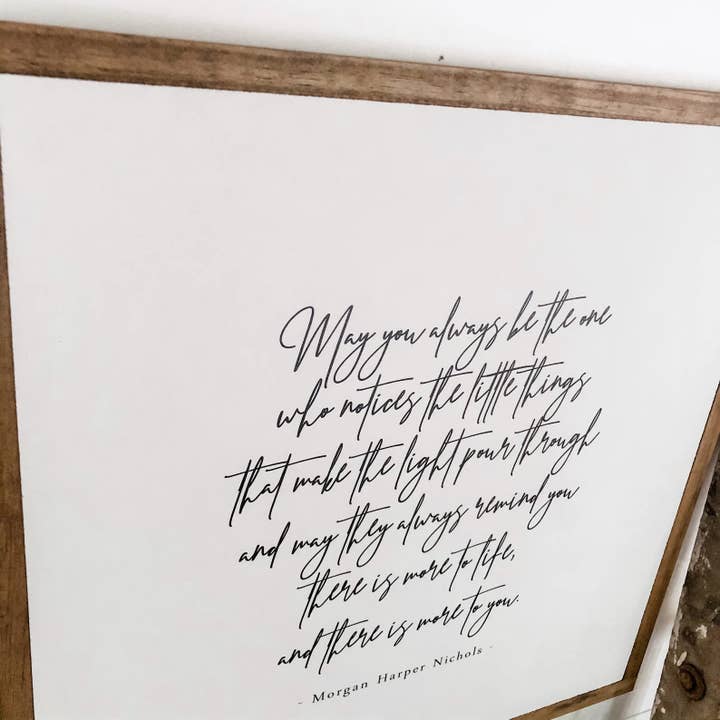 May you always be the one
who notices the little things
that make the light pour through
and may they always remind you
there is more to life,
and there is more to you.
- Morgan Harper Nichols -